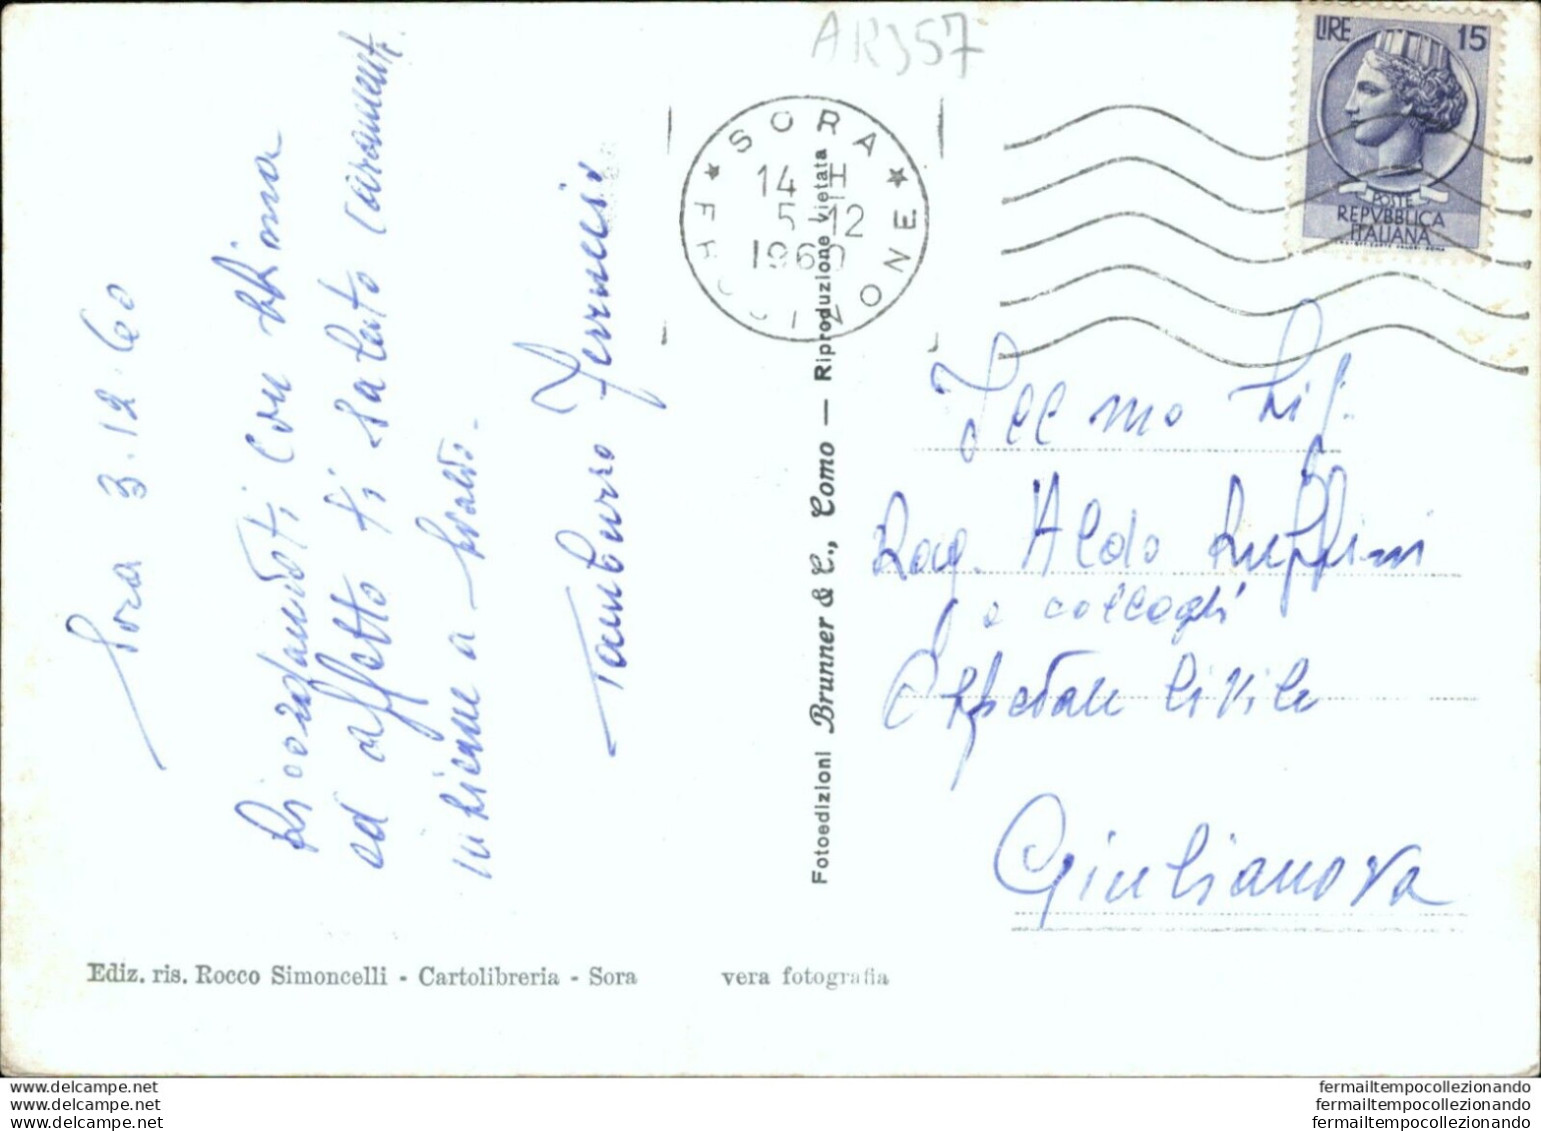 AR357
LIRE 15
POSTE
REPVBBLICA
ITALIANA
* SORA *
FROSINONE
14 H
5-12
1960
Sora 3.12.60
Ricordandoti con stima
ed affetto ti saluto caramente
insieme a
Tamburro
Ill mo Sig.
Rag. Aldo Ruffini
e colleghi
Ospedale Civile
Giulianova
Fotoedizioni Brunner & C., Como — Riproduzione vietata
Ediz. ris. Rocco Simoncelli - Cartolibreria - Sora vera fotografia
www.delcampe.net
www.delcampe.net
www.delcampe.net
fermailtempocollezionando
fermailtempocollezionando
fermailtempocollezionando